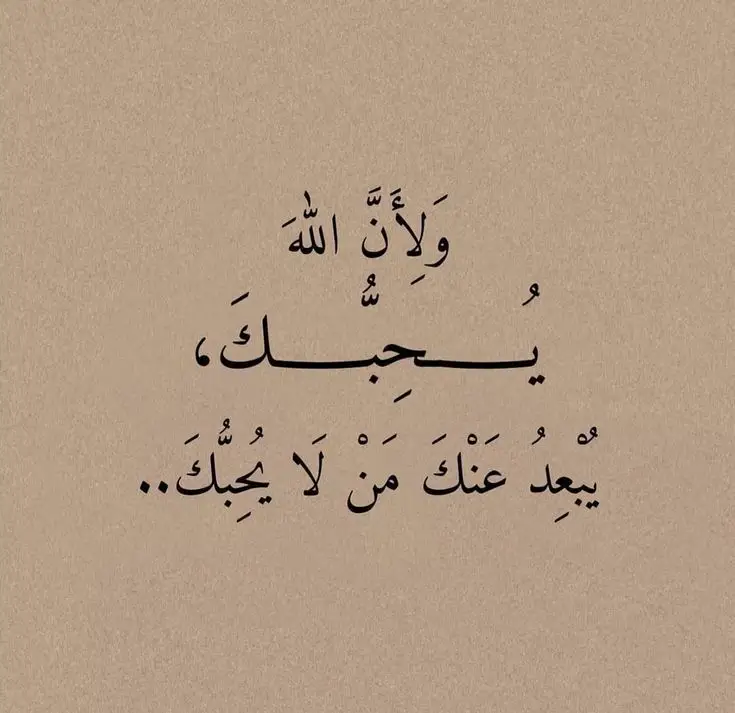 وَلِأَنَّ اللهَ
يُـــحِبُّـــكَ،
يُبْعِدُ عَنْكَ مَنْ لَا يُحِبُّكَ..